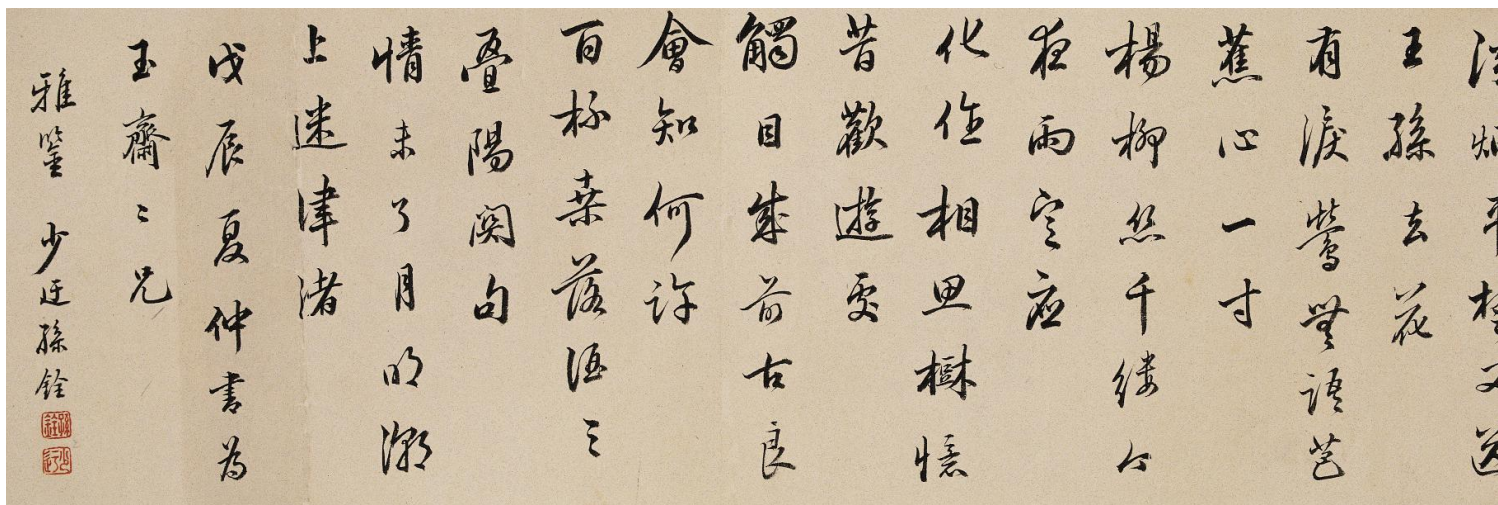 淡烟平楚又送
王孫去花
有淚鶯無語芭
蕉心一寸
楊柳絲千縷今
夜雨定應
化作相思樹憶
昔歡遊處
觸目成前古良
會知何許
百杯桑落酒三
疊陽關句
情未了月明潮
上迷津渚
戊辰夏仲書為
玉齋二兄
雅鑒 少迂孫銓
孫銓
少迂